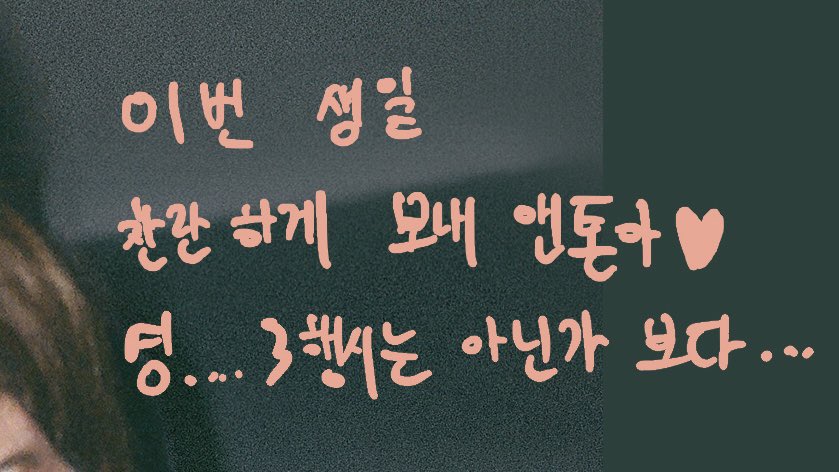 이번 생일
찬란하게 보내 앤톤아♥
영....3행시는 아닌가 보다...